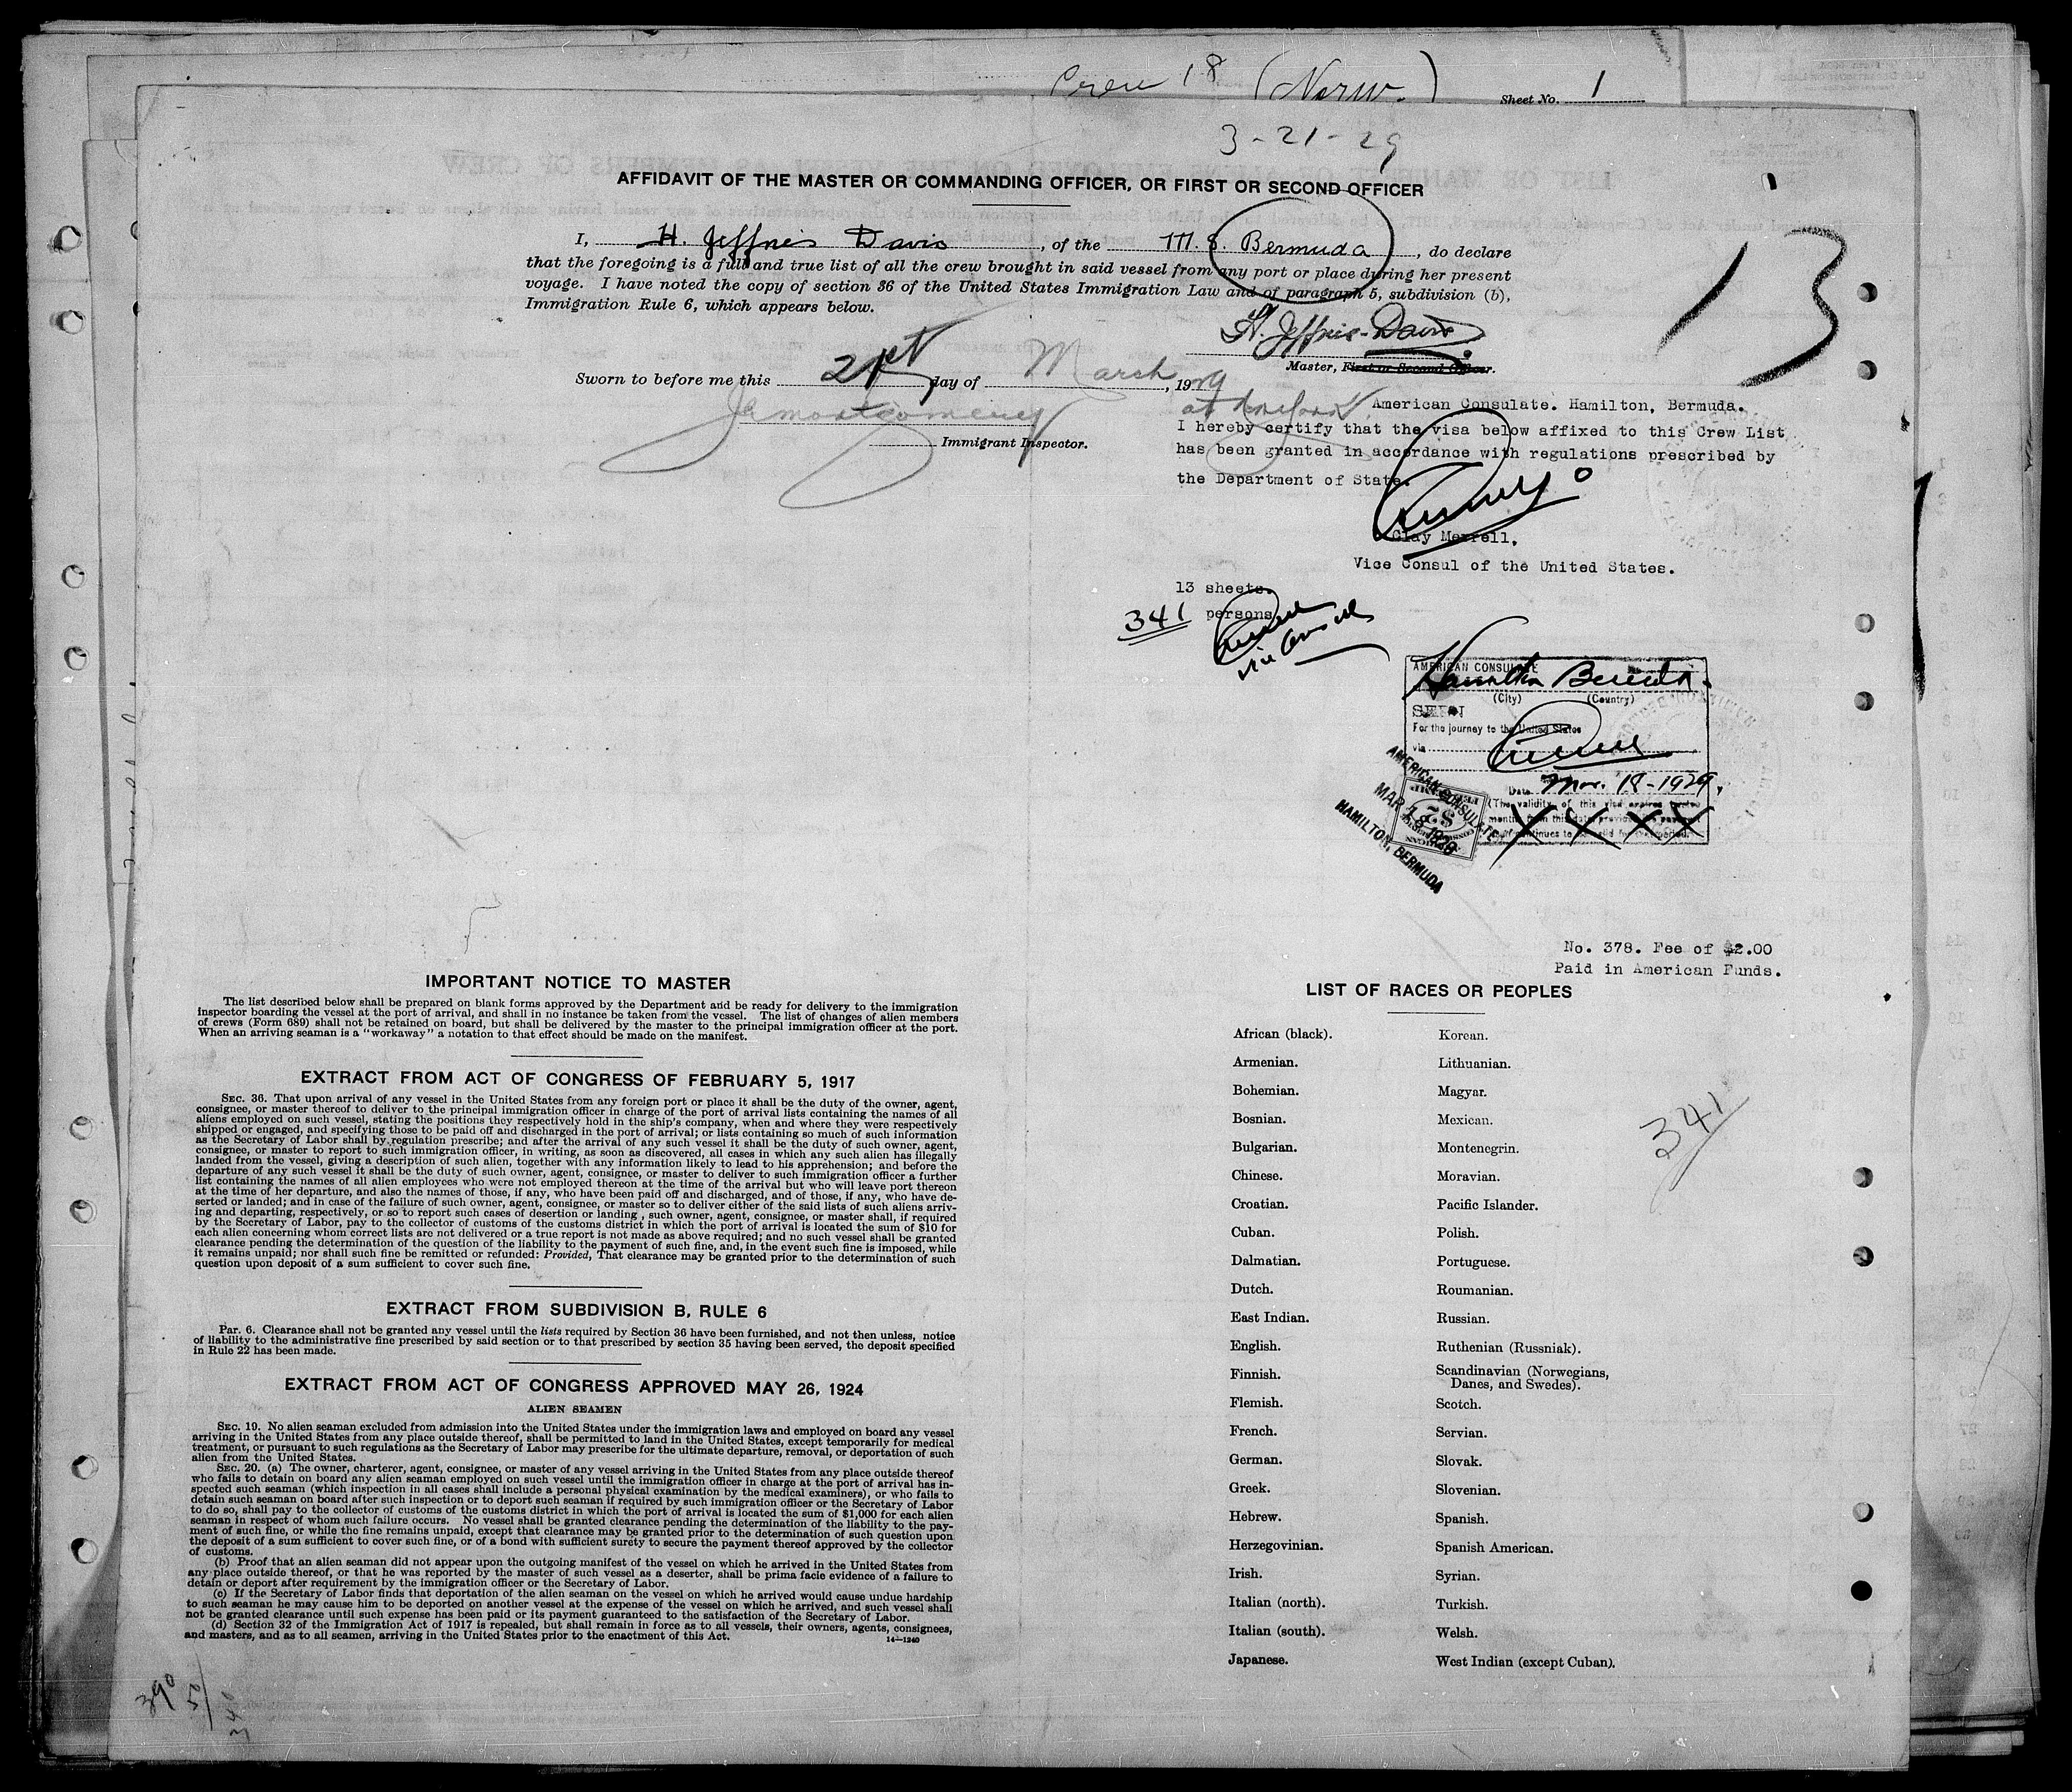 Crew 18 (Norw.)
Sheet No. 1
3-21-29
13
AFFIDAVIT OF THE MASTER OR COMMANDING OFFICER, OR FIRST OR SECOND OFFICER
I, H. Jeffries Davis, of the M.S. Bermuda, do declare
that the foregoing is a full and true list of all the crew brought in said vessel from any port or place during her present
voyage. I have noted the copy of section 36 of the United States Immigration Law and of paragraph 5, subdivision (b),
Immigration Rule 6, which appears below.
H. Jeffries-Davis
Master, First or Second Officer.
Sworn to before me this 21st day of March, 1929
at
Immigrant Inspector.
American Consulate. Hamilton, Bermuda.
I hereby certify that the visa below affixed to this Crew List
has been granted in accordance with regulations prescribed by
the Department of State.
Clay Merrell.
Vice Consul of the United States.
13 sheets.
341 persons
Vice Consul
AMERICAN CONSULATE
Hamilton Bermuda.
(City) (Country)
SEEN
For the journey to the United States
via
Date Mar. 18-1929.
(The validity of this visa expires twelve
months from this date, provided the passport
itself continues to be valid for that period.
AMERICAN CONSULATE
MAR 18 1929
HAMILTON, BERMUDA
$2
No. 378. Fee of $2.00
Paid in American Funds.
IMPORTANT NOTICE TO MASTER
The list described below shall be prepared on blank forms approved by the Department and be ready for delivery to the immigration
inspector boarding the vessel at the port of arrival, and shall in no instance be taken from the vessel. The list of changes of alien members
of crews (Form 689) shall not be retained on board, but shall be delivered by the master to the principal immigration officer at the port.
When an arriving seaman is a "workaway" a notation to that effect should be made on the manifest.
EXTRACT FROM ACT OF CONGRESS OF FEBRUARY 5, 1917
SEC. 36. That upon arrival of any vessel in the United States from any foreign port or place it shall be the duty of the owner, agent,
consignee, or master thereof to deliver to the principal immigration officer in charge of the port of arrival lists containing the names of all
aliens employed on such vessel, stating the positions they respectively hold in the ship's company, when and where they were respectively
shipped or engaged, and specifying those to be paid off and discharged in the port of arrival; or lists containing so much of such information
as the Secretary of Labor shall by regulation prescribe; and after the arrival of any such vessel it shall be the duty of such owner, agent,
consignee, or master to report to such immigration officer, in writing, as soon as discovered, all cases in which any such alien has illegally
landed from the vessel, giving a description of such alien, together with any information likely to lead to his apprehension; and before the
departure of any such vessel it shall be the duty of such owner, agent, consignee, or master to deliver to such immigration officer a further
list containing the names of all alien employees who were not employed thereon at the time of the arrival but who will leave port thereon
at the time of her departure, and also the names of those, if any, who have been paid off and discharged, and of those, if any, who have de-
serted or landed; and in case of the failure of such owner, agent, consignee, or master so to deliver either of the said lists of such aliens arriv-
ing and departing, respectively, or so to report such cases of desertion or landing, such owner, agent, consignee, or master shall, if required
by the Secretary of Labor, pay to the collector of customs of the customs district in which the port of arrival is located the sum of $10 for
each alien concerning whom correct lists are not delivered or a true report is not made as above required; and no such vessel shall be granted
clearance pending the determination of the question of the liability to the payment of such fine, and, in the event such fine is imposed, while
it remains unpaid; nor shall such fine be remitted or refunded: Provided, That clearance may be granted prior to the determination of such
question upon deposit of a sum sufficient to cover such fine.
EXTRACT FROM SUBDIVISION B, RULE 6
Par. 6. Clearance shall not be granted any vessel until the lists required by Section 36 have been furnished, and not then unless, notice
of liability to the administrative fine prescribed by said section or to that prescribed by section 35 having been served, the deposit specified
in Rule 22 has been made.
EXTRACT FROM ACT OF CONGRESS APPROVED MAY 26, 1924
ALIEN SEAMEN
SEC. 19. No alien seaman excluded from admission into the United States under the immigration laws and employed on board any vessel
arriving in the United States from any place outside thereof, shall be permitted to land in the United States, except temporarily for medical
treatment, or pursuant to such regulations as the Secretary of Labor may prescribe for the ultimate departure, removal, or deportation of such
alien from the United States.
SEC. 20. (a) The owner, charterer, agent, consignee, or master of any vessel arriving in the United States from any place outside thereof
who fails to detain on board any alien seaman employed on such vessel until the immigration officer in charge at the port of arrival has in-
spected such seaman (which inspection in all cases shall include a personal physical examination by the medical examiners), or who fails to
detain such seaman on board after such inspection or to deport such seaman if required by such immigration officer or the Secretary of Labor
to do so, shall pay to the collector of customs of the customs district in which the port of arrival is located the sum of $1,000 for each alien
seaman in respect of whom such failure occurs. No vessel shall be granted clearance pending the determination of the liability to the pay-
ment of such fine, or while the fine remains unpaid, except that clearance may be granted prior to the determination of such question upon
the deposit of a sum sufficient to cover such fine, or of a bond with sufficient surety to secure the payment thereof approved by the collector
of customs.
(b) Proof that an alien seaman did not appear upon the outgoing manifest of the vessel on which he arrived in the United States from
any place outside thereof, or that he was reported by the master of such vessel as a deserter, shall be prima facie evidence of a failure to
detain or deport after requirement by the immigration officer or the Secretary of Labor.
(c) If the Secretary of Labor finds that deportation of the alien seaman on the vessel on which he arrived would cause undue hardship
to such seaman he may cause him to be deported on another vessel at the expense of the vessel on which he arrived, and such vessel shall
not be granted clearance until such expense has been paid or its payment guaranteed to the satisfaction of the Secretary of Labor.
(d) Section 32 of the Immigration Act of 1917 is repealed, but shall remain in force as to all vessels, their owners, agents, consignees,
and masters, and as to all seamen, arriving in the United States prior to the enactment of this Act.
14—1240
390
50
340
LIST OF RACES OR PEOPLES
African (black). Korean.
Armenian. Lithuanian.
Bohemian. Magyar.
Bosnian. Mexican.
Bulgarian. Montenegrin.
Chinese. Moravian.
Croatian. Pacific Islander.
Cuban. Polish.
Dalmatian. Portuguese.
Dutch. Roumanian.
East Indian. Russian.
English. Ruthenian (Russniak).
Finnish. Scandinavian (Norwegians,
Danes, and Swedes).
Flemish. Scotch.
French. Servian.
German. Slovak.
Greek. Slovenian.
Hebrew. Spanish.
Herzegovinian. Spanish American.
Irish. Syrian.
Italian (north). Turkish.
Italian (south). Welsh.
Japanese. West Indian (except Cuban).
341